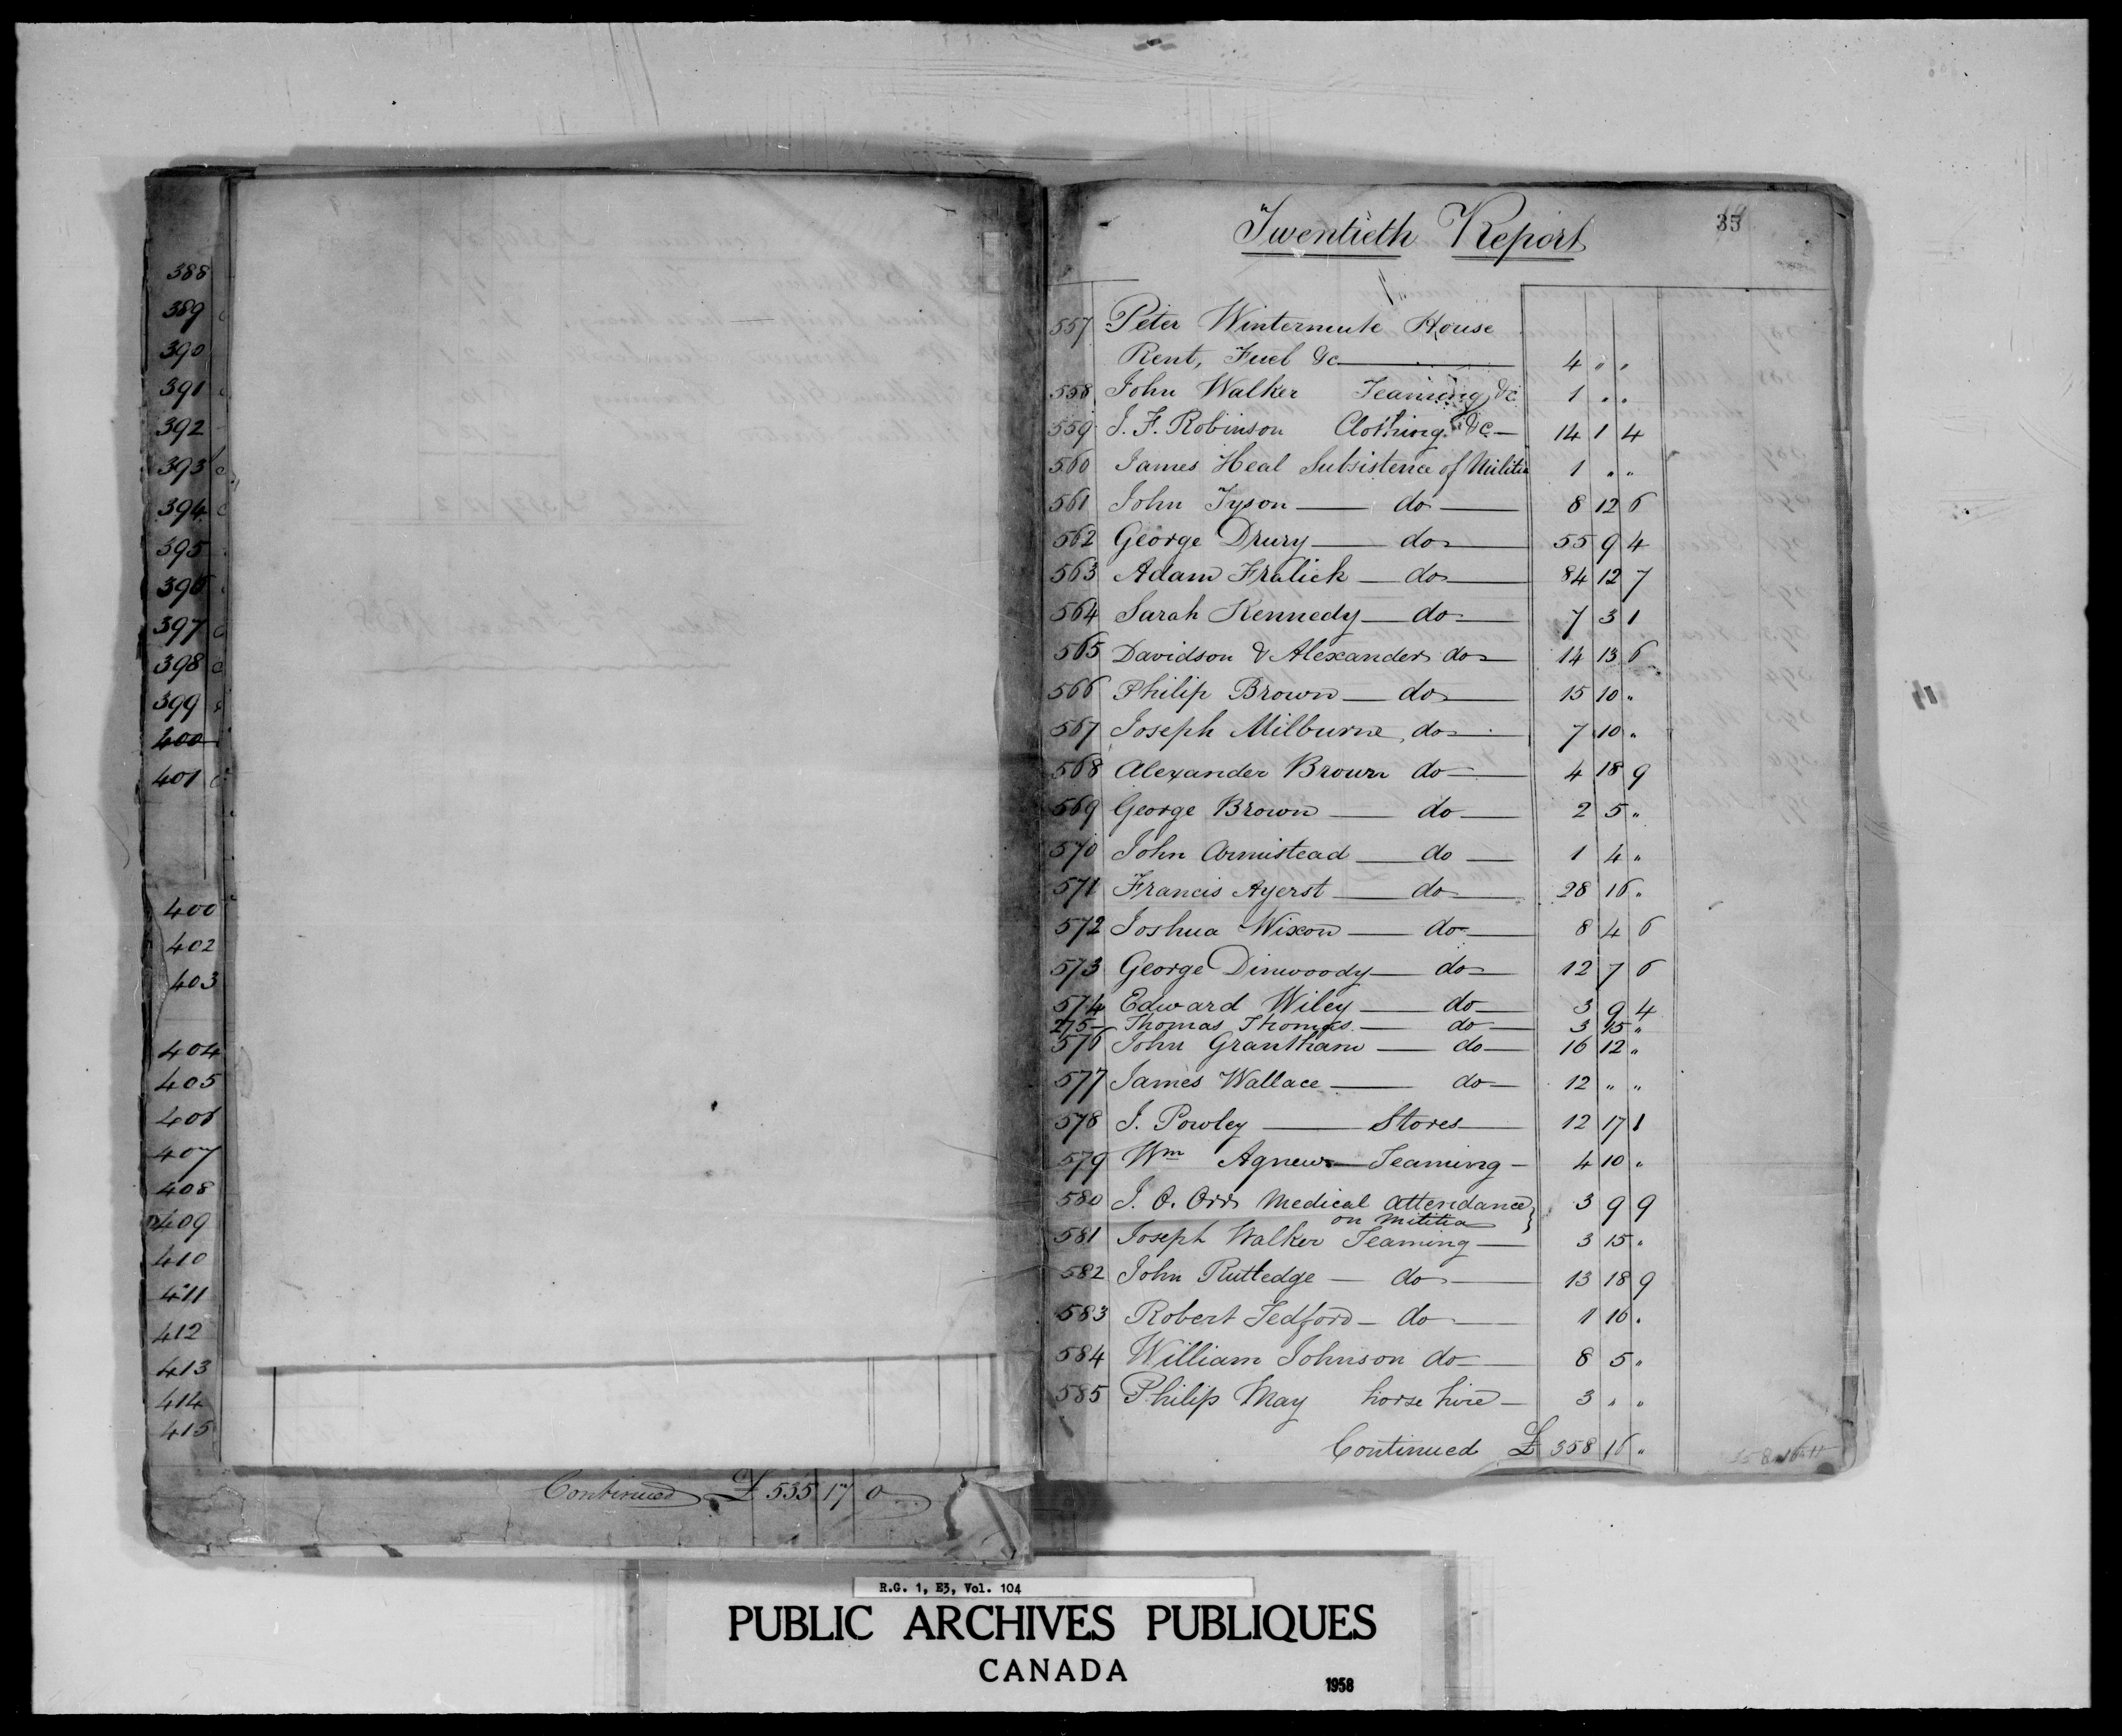 388
389
390
391
392
393
394
395
396
397
398
399
400
401
400
402
403
404
405
406
407
408
409
410
411
412
413
414
415
Continued £ 535 17 0
Twentieth Report
35
557 Peter Wintermute House
Rent, Fuel &c 4 " "
558 John Walker Teaming &c 1 " "
559 J. F. Robinson Clothing &c 14 1 4
560 James Heal Subsistence of Militia 1 " "
561 John Tyson do 8 12 6
562 George Drury do 55 9 4
563 Adam Fralick do 84 12 7
564 Sarah Kennedy do 7 3 1
565 Davidson & Alexander do 14 13 6
566 Philip Brown do 15 10 "
567 Joseph Milburne do 7 10 "
568 Alexander Brown do 4 18 9
569 George Brown do 2 5 "
570 John Armistead do 1 4 "
571 Francis Ayerst do 28 16 "
572 Joshua Wixon do 8 4 6
573 George Dinwoody do 12 7 6
574 Edward Wiley do 3 9 4
275 Thomas Thomas do 3 15 "
576 John Grantham do 16 12 "
577 James Wallace do 12 " "
578 J. Powley Stores 12 17 1
579 Wm Agnew Teaming 4 10 "
580 J. O. Orr Medical attendance 3 9 9
on Militia
581 Joseph Walker Teaming 3 15 "
582 John Rutledge do 13 18 9
583 Robert Tedford do 1 10 "
584 William Johnson do 8 5 "
585 Philip May horse hire 3 " "
Continued £ 358 16 "
R.G. 1, E3, Vol. 104
PUBLIC ARCHIVES PUBLIQUES
CANADA
1958